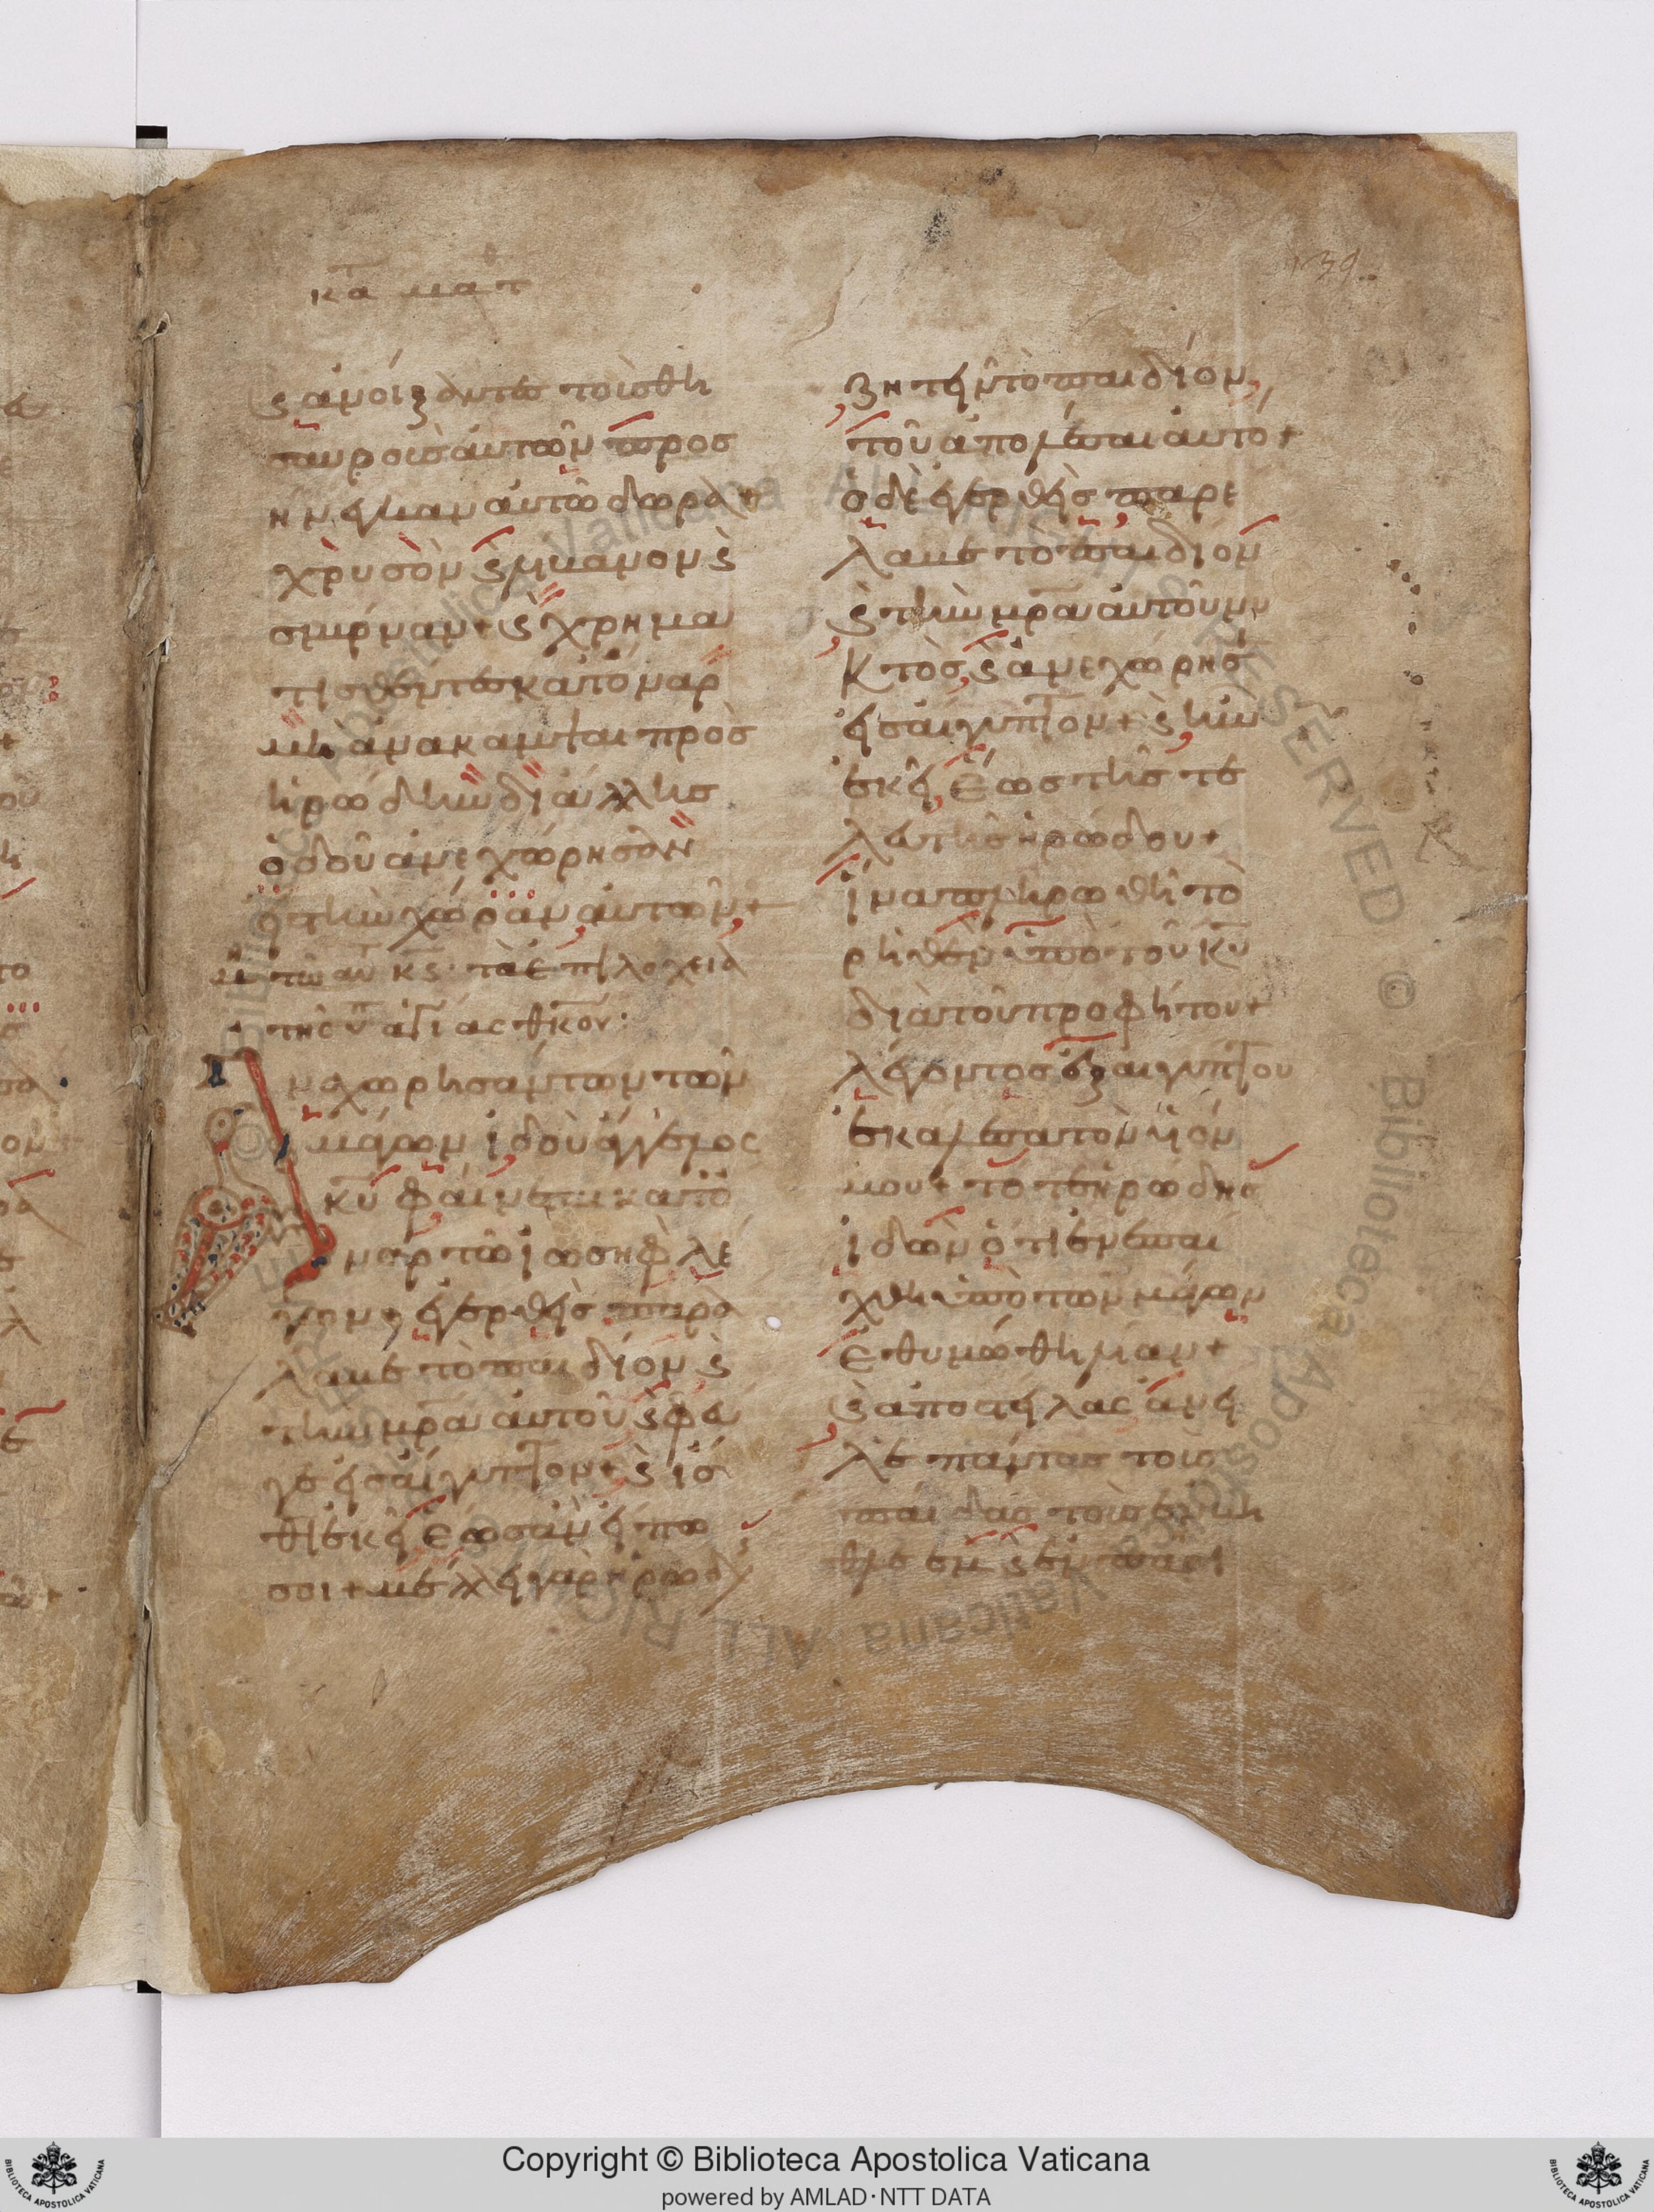 κα ματ
139
ϛ ἀνοίξαντες τοὺς θη
σαυροὺς αὐτῶν προσ
ήνεγκαν αὐτῶ δῶρα +
χρυσὸν ϛ λίβανον ϛ
σμύρναν + ϛ χρημα
τισθέντες κατ' ὄναρ
μὴ ἀνακάμψαι πρὸς
ἡρώδην δι' ἄλλης
ὁδοῦ ἀνεχώρησαν
εἰς τὴν χώραν αὐτῶν +
μη τῶ αυ κϛ · τὰ ἐπιλόχεια
τῆς υπ ἁγίας θκου :
Ἀναχωρησάντων τῶν
μάγων ἰδοὺ ἄγγελος
κυ φαίνεται κατ' ὄ
ναρ τῶ ἰωσηφ λέ
γων, ἐγερθεὶς παρά
λαβε τὸ παιδίον ϛ
τὴν μρα αὐτοῦ ϛ φεῦ
γε εἰς αἴγυπτον + ϛ ἴσ
θι ἐκεῖ ἕως ἂν εἴπω
σοι + μέλλει γὰρ ἡρώδης
ζητεῖν τὸ παιδίον,
τοῦ ἀπολέσαι αὐτό +
ὁ δὲ ἐγερθεὶς παρέ
λαβε τὸ παιδίον
ϛ τὴν μρα αὐτοῦ νυ
κτὸς, ϛ ἀνεχώρησεν
εἰς αἴγυπτον + ϛ ἦν
ἐκεῖ, ἕως τῆς τε
λευτῆς ἡρώδου +
ἵνα πληρωθῆ τὸ
ῥηθὲν ὑπὸ τοῦ κυ
διὰ τοῦ προφήτου +
λέγοντος ἐξ αἰγύπτου
ἐκάλεσα τὸν υἱόν
μου + τότε ἡρώδης
ἰδὼν ὅτι ἐνεπαί
χθη ὑπὸ τῶν μάγων
ἐθυμώθη λίαν +
ϛ ἀποστείλας ἀνεῖ
λε πάντας τοὺς
παῖδας τοὺς ἐν βη
θλεὲμ ϛ ἐν πᾶσι
Copyright © Biblioteca Apostolica Vaticana
powered by AMLAD·NTT DATA